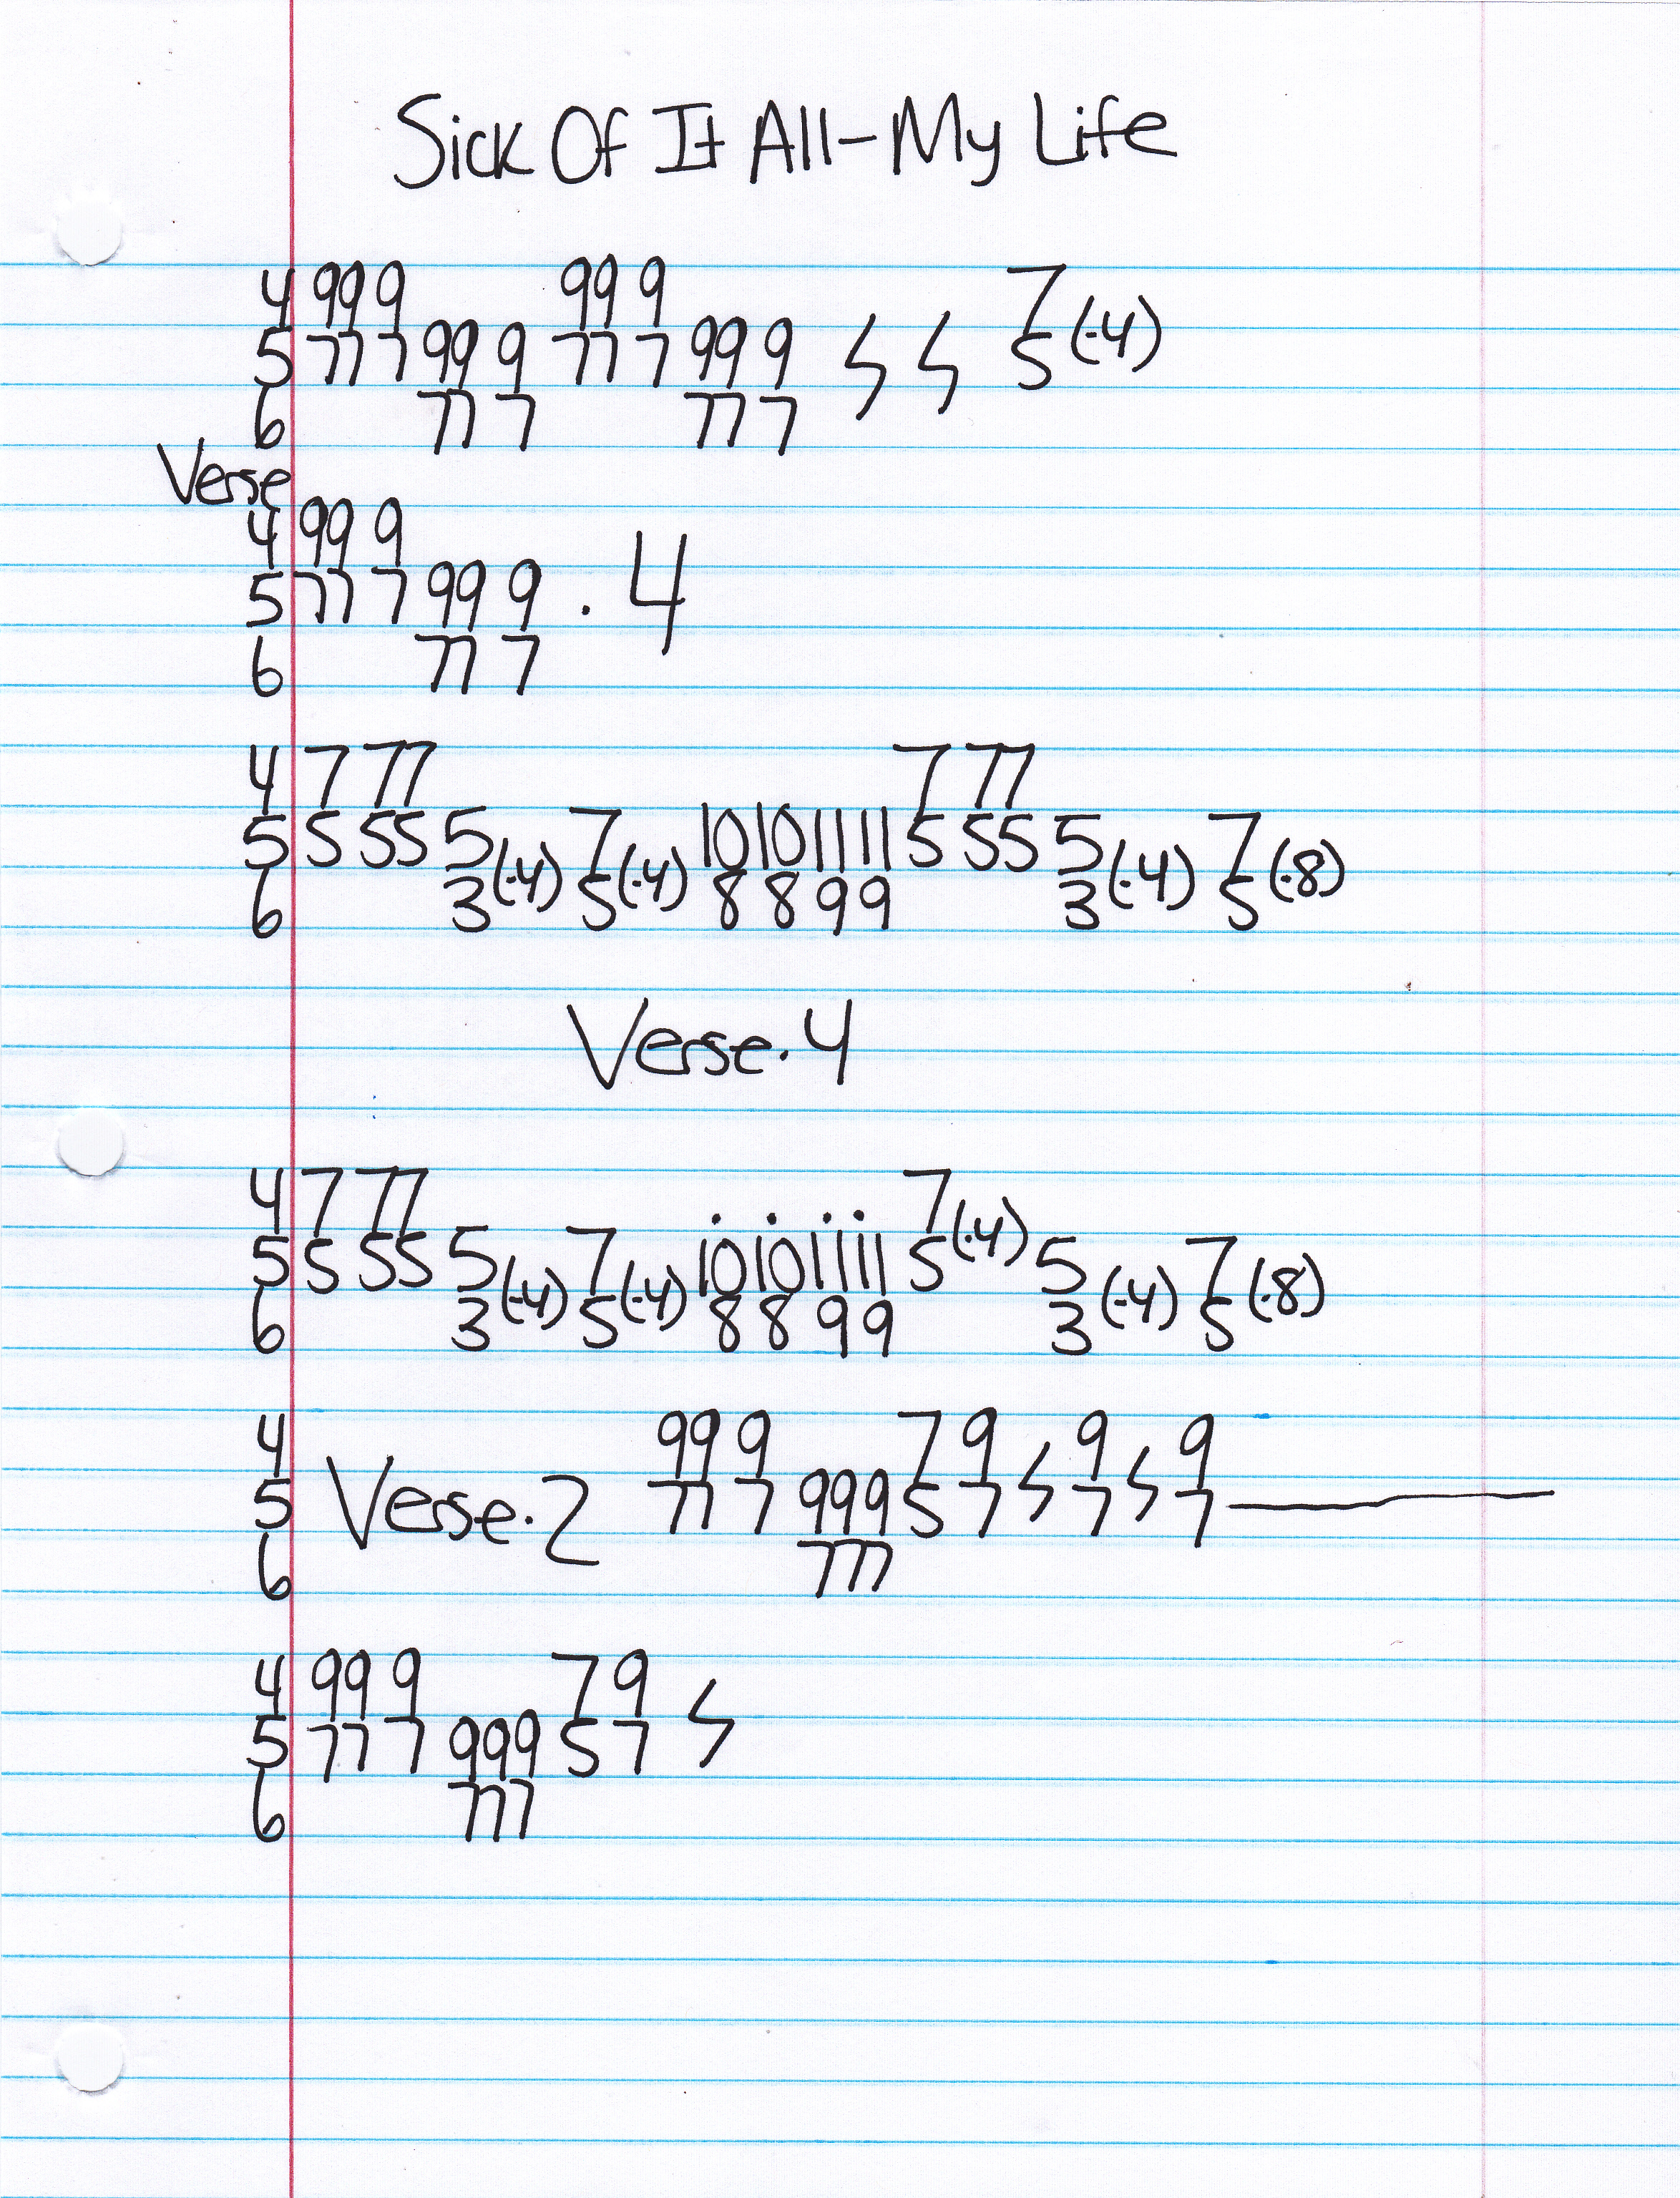 Sick Of It All-My Life
4 99 9 99 9 7
5 77 7 99 9 77 7 99 9 ϟ ϟ 5 (·4)
6 77 7 77 7
Verse
4 99 9
5 77 7 99 9 . 4
6 77 7
4 7 77 7 77
5 5 55 5 7 10 10 11 11 5 55 5 7
6 3(·4) 5(·4) 8 8 9 9 3(·4) 5(·8)
Verse.4
4 7 77 7
5 5 55 5 7 10 10 11 11 5(·4) 5 7
6 3(·4) 5(·4) 8 8 9 9 3(·4) 5(·8)
4 99 9 7 9 9 9
5 Verse.2 77 7 999 5 7 ϟ 7 ϟ 7
6 777
4 99 9 7 9
5 77 7 999 5 7 ϟ
6 777